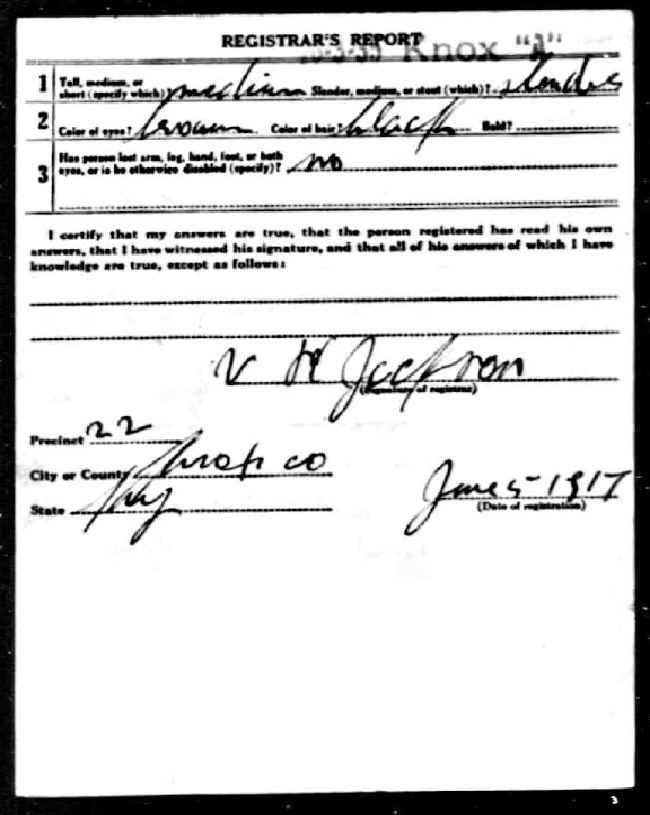 REGISTRAR'S REPORT
Knox "A"
1 Tall, medium, or short (specify which)? medium Slender, medium, or stout (which)? slender
2 Color of eyes? brown Color of hair? black Bald?
3 Has person lost arm, leg, hand, foot, or both eyes, or is he otherwise disabled (specify)? no
I certify that my answers are true, that the person registered has read his own
answers, that I have witnessed his signature, and that all of his answers of which I have
knowledge are true, except as follows:
V H Jackson
(Signature of registrar)
Precinct 22
City or County Knox co
State Ky
June 5 - 1917
(Date of registration)
3